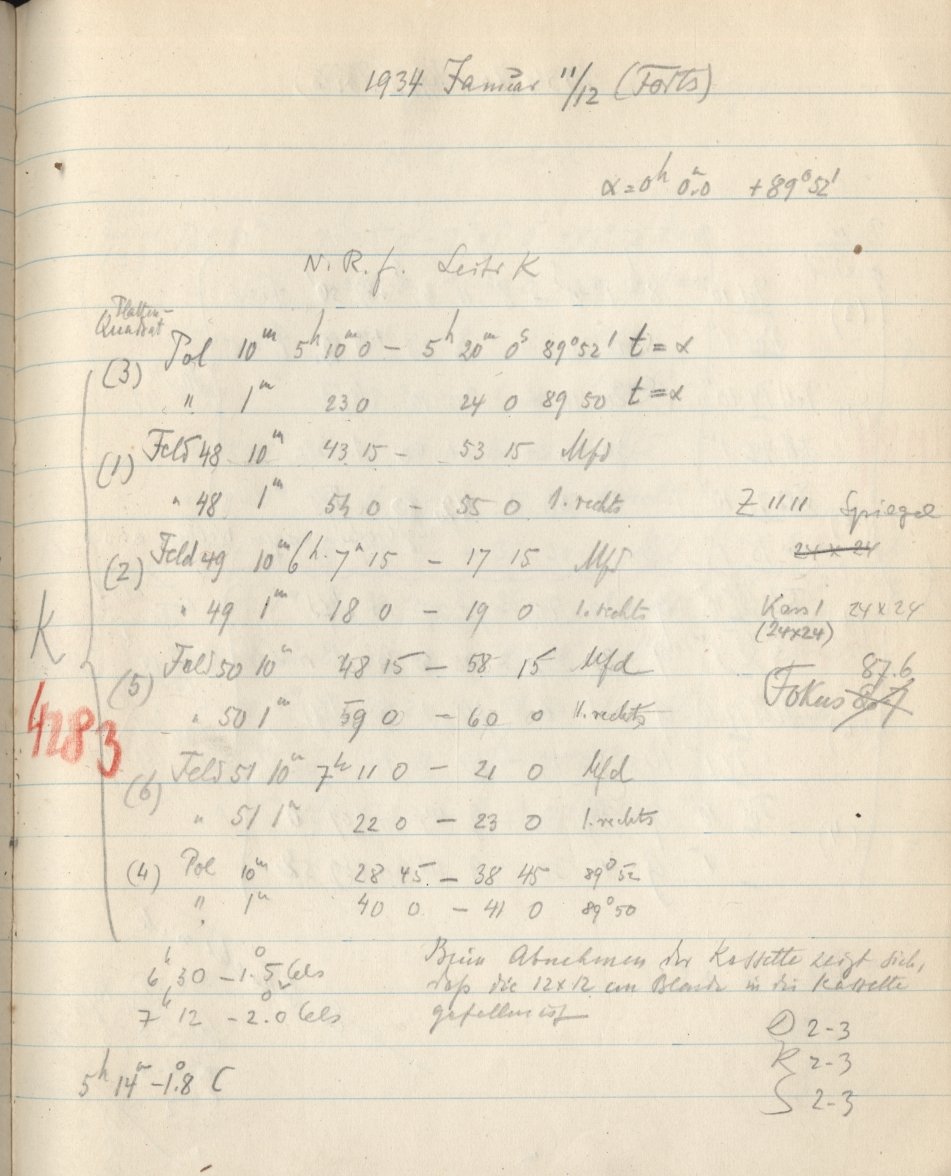 1934 Januar 11/12 (Forts)
α = 0h 0m.0 + 89°52'
N. R. f. Leitr K
Platten-
Quadrat
(3) Pol 10m 5h 10m 0 – 5h 20m 0s 89°52' t = α
" 1m 23 0 24 0 89 50 t = α
(1) Feld 48 10m 43 15 – 53 15 Mfd
" 48 1m 54 0 – 55 0 1. rechts
Z 1111 Spiegel
24 x 24
(2) Feld 49 10m 6h. 7m 15 – 17 15 Mfd
" 49 1m 18 0 – 19 0 1. rechts
Kass 1 24x24
(24x24)
K
(5) Feld 50 10m 48 15 – 58 15 Mfd
87.6
Fokus
" 50 1m 59 0 – 60 0 1. rechts
4283
(6) Feld 51 10m 7h 11 0 – 21 0 Mfd
" 51 1m 22 0 – 23 0 1. rechts
(4) Pol 10m 28 45 – 38 45 89°52
" 1m 40 0 – 41 0 89°50
6h 30 – 1.°5 Cels
7h 12 – 2.°0 Cels
Beim Abnehmen der Kassette zeigt sich,
daß die 12x12 cm Blende in die Kassette
gefallen ist
D 2-3
R 2-3
S 2-3
5h 14m –1.°8 C